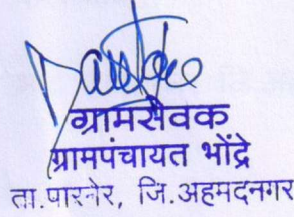 ग्रामसेवक
ग्रामपंचायत भोंद्रे
ता.पारनेर, जि.अहमदनगर